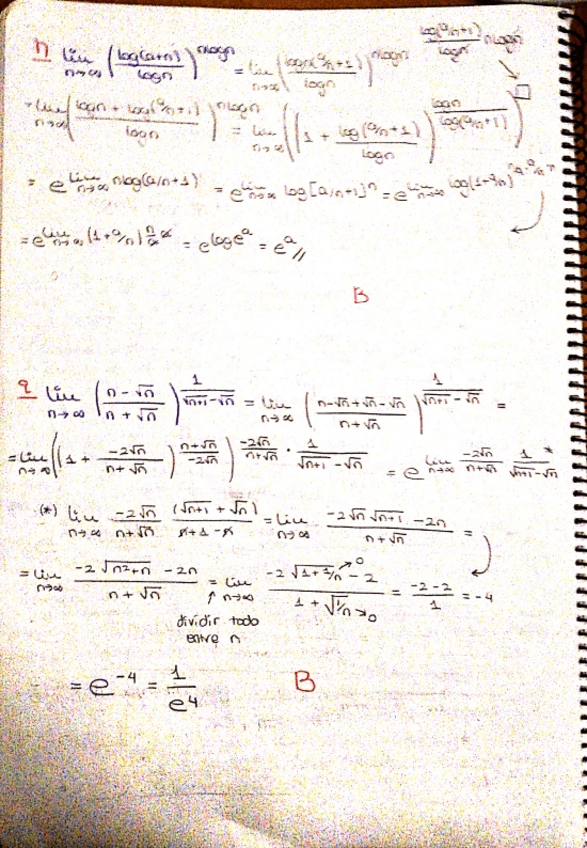 n lim n→∞ (log(a+n)/logn)^nlogn = lim n→∞ (logn(a/n+1)/logn)^nlogn log(a/n+1)/logn · nlogn
= lim n→∞ (logn + log(a/n+1)/logn)^nlogn = lim n→∞ ((1 + log(a/n+1)/logn)^logn/log(a/n+1))^□
= e^lim n→∞ nlog(a/n+1) = e^lim n→∞ log[a/n+1]^n = e^lim n→∞ log(1+a/n)
= e^lim n→∞ (1+a/n) = e^log e^a = e^a //
B
q lim n→∞ (n-√n / n+√n)^1/(√n+1-√n) = lim n→∞ (n-√n+√n-√n / n+√n)^1/(√n+1 - √n) =
= lim n→∞ ((1 + -2√n/n+√n)^n+√n/-2√n)^-2√n/n+√n · 1/(√n+1 - √n) = e^lim n→∞ -2√n/n+√n · 1/(√n+1-√n) *
(*) lim n→∞ -2√n/n+√n · (√n+1 + √n)/n+1-n = lim n→∞ -2√n√n+1 - 2n / n+√n =
= lim n→∞ -2√n²+n - 2n / n+√n = lim n→∞ -2√1+1/n - 2 / 1+√1/n →0 = -2-2/1 = -4
dividir todo
entre n
= e^-4 = 1/e^4 B